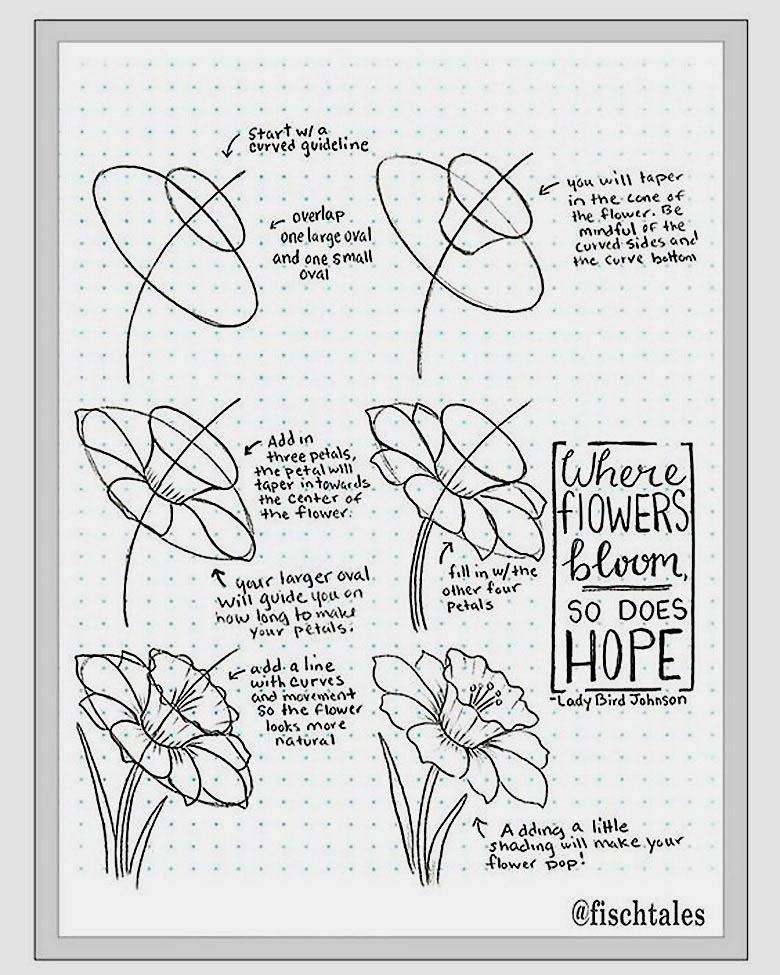 Start w/a
curved guideline
overlap
one large oval
and one small
oval
you will taper
in the cone of
the flower. Be
mindful of the
curved sides and
the curve bottom
Add in
three petals,
the petal will
taper in towards
the center of
the flower.
your larger oval
will guide you on
how long to make
your petals.
fill in w/the
other four
petals
Where
flOWERS
bloom,
SO DOES
HOPE
-Lady Bird Johnson
add a line
with curves
and movement
so the flower
looks more
natural
Adding a little
shading will make your
flower pop!
@fischtales